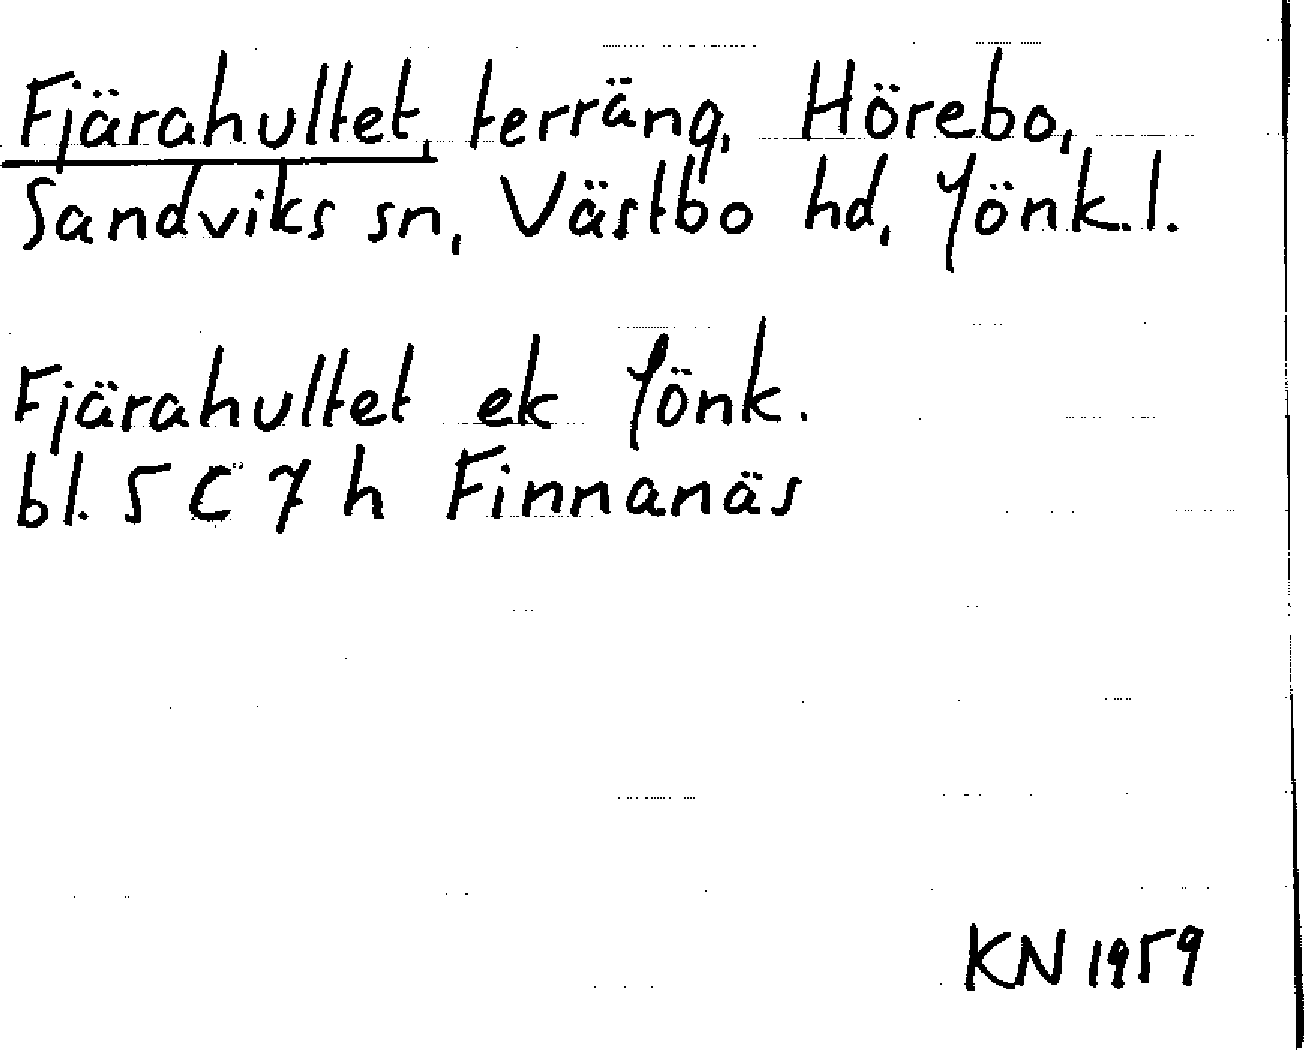 Fjärahultet, terräng, Hörebo,
Sandviks sn, Västbo hd, Jönk.l.
Fjärahultet ek Jönk.
bl. 5 C 7 h Finnanäs
KN 1959